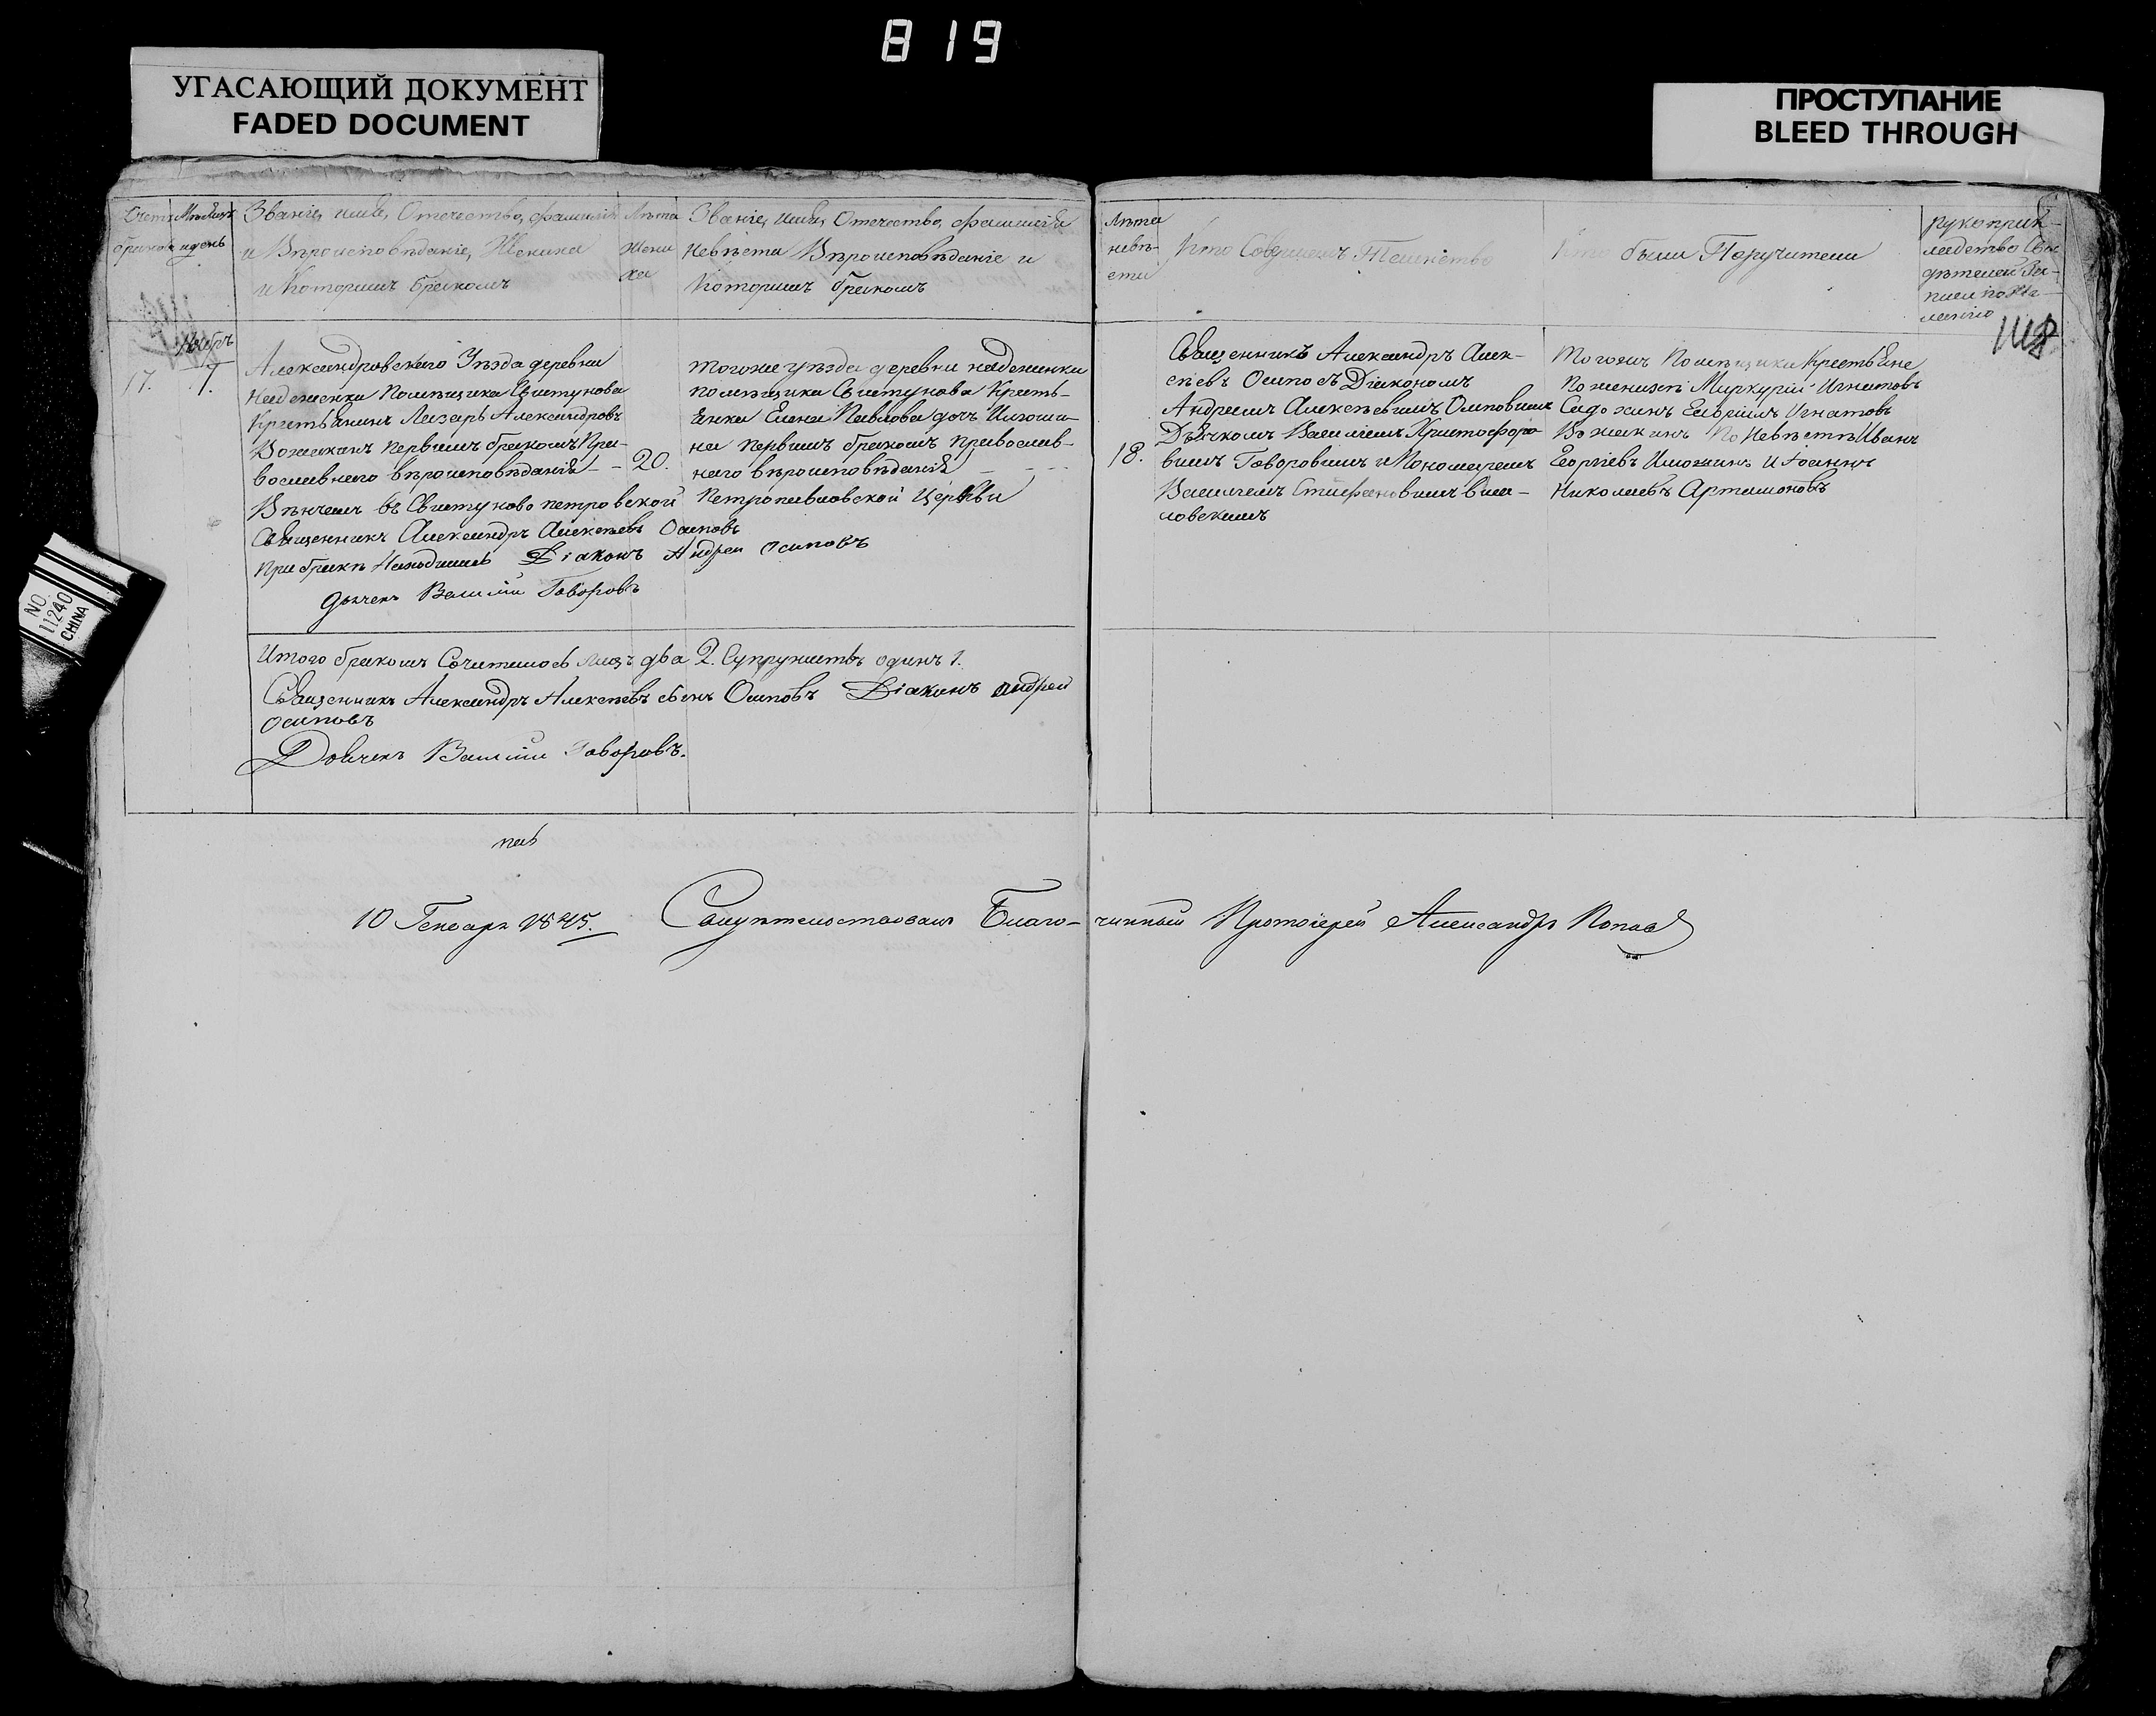 819
УГАСАЮЩИЙ ДОКУМЕНТ
FADED DOCUMENT
ПРОСТУПАНИЕ
BLEED THROUGH
NO.
11240
CHINA
Счетъ браковъ
Мѣсяцъ и день
Званіе, имя, Отечество, фамилія
и Вѣроисповѣданіе, Жениха
и Которымъ бракомъ
Лѣта
жени
ха
Званіе, имя, Отечество, фамилія
невѣста Вѣроисповѣданіе и
Которымъ бракомъ
Лѣта
невѣ-
сты
Кто Совершалъ Таинство
Кто были Поручители
рукоприк-
ладство Сви
дѣтелей За-
писи по же-
ланію
Ноябръ
17. 7.
Александровскаго Уѣзда деревни
Надеженки Помѣщика Свистунова
Крестьянинъ Лазарь Александровъ
Вожжинъ первымъ бракомъ Пра-
вославнаго вѣроисповѣданія - - 20.
Вѣнчалъ въ Свистуново петровской Петропавловской Церкви
Священникъ Александръ Алексѣевъ Осиповъ
При бракѣ Находились Діаконъ Андрей Осиповъ
дьячекъ Василій Говоровъ
тогоже уѣзда деревни надеженки
помѣщика Свистунова Кресть-
янка Елена Павлова дочь
на первымъ бракомъ православ-
наго вѣроисповѣданія
18.
Священникъ Александръ Алек-
сѣевъ Осиповъ Діакономъ
Андреемъ Алексѣевымъ Осиповымъ
Дьячкомъ Василіемъ Христофоро
вымъ Говоровымъ и Пономаремъ
Василіемъ Стефановымъ
Тогожъ Помѣщика Крестьяне
По женихѣ Меркурій Игнатовъ
Игнатовъ
По Невѣстѣ Иванъ
Георгіевъ и Іоаннъ
Николаевъ Артамоновъ
Итого бракомъ Сочеталось лицъ два 2. Супружествъ одинъ 1.
Священникъ Александръ Алексѣевъ сынъ Осиповъ Діаконъ Андрей
Осиповъ
Дьячекъ Василій Говоровъ.
10 Генваря 1845. Свидѣтельствовалъ Благо- чинный Протоіерей Александръ Поповъ